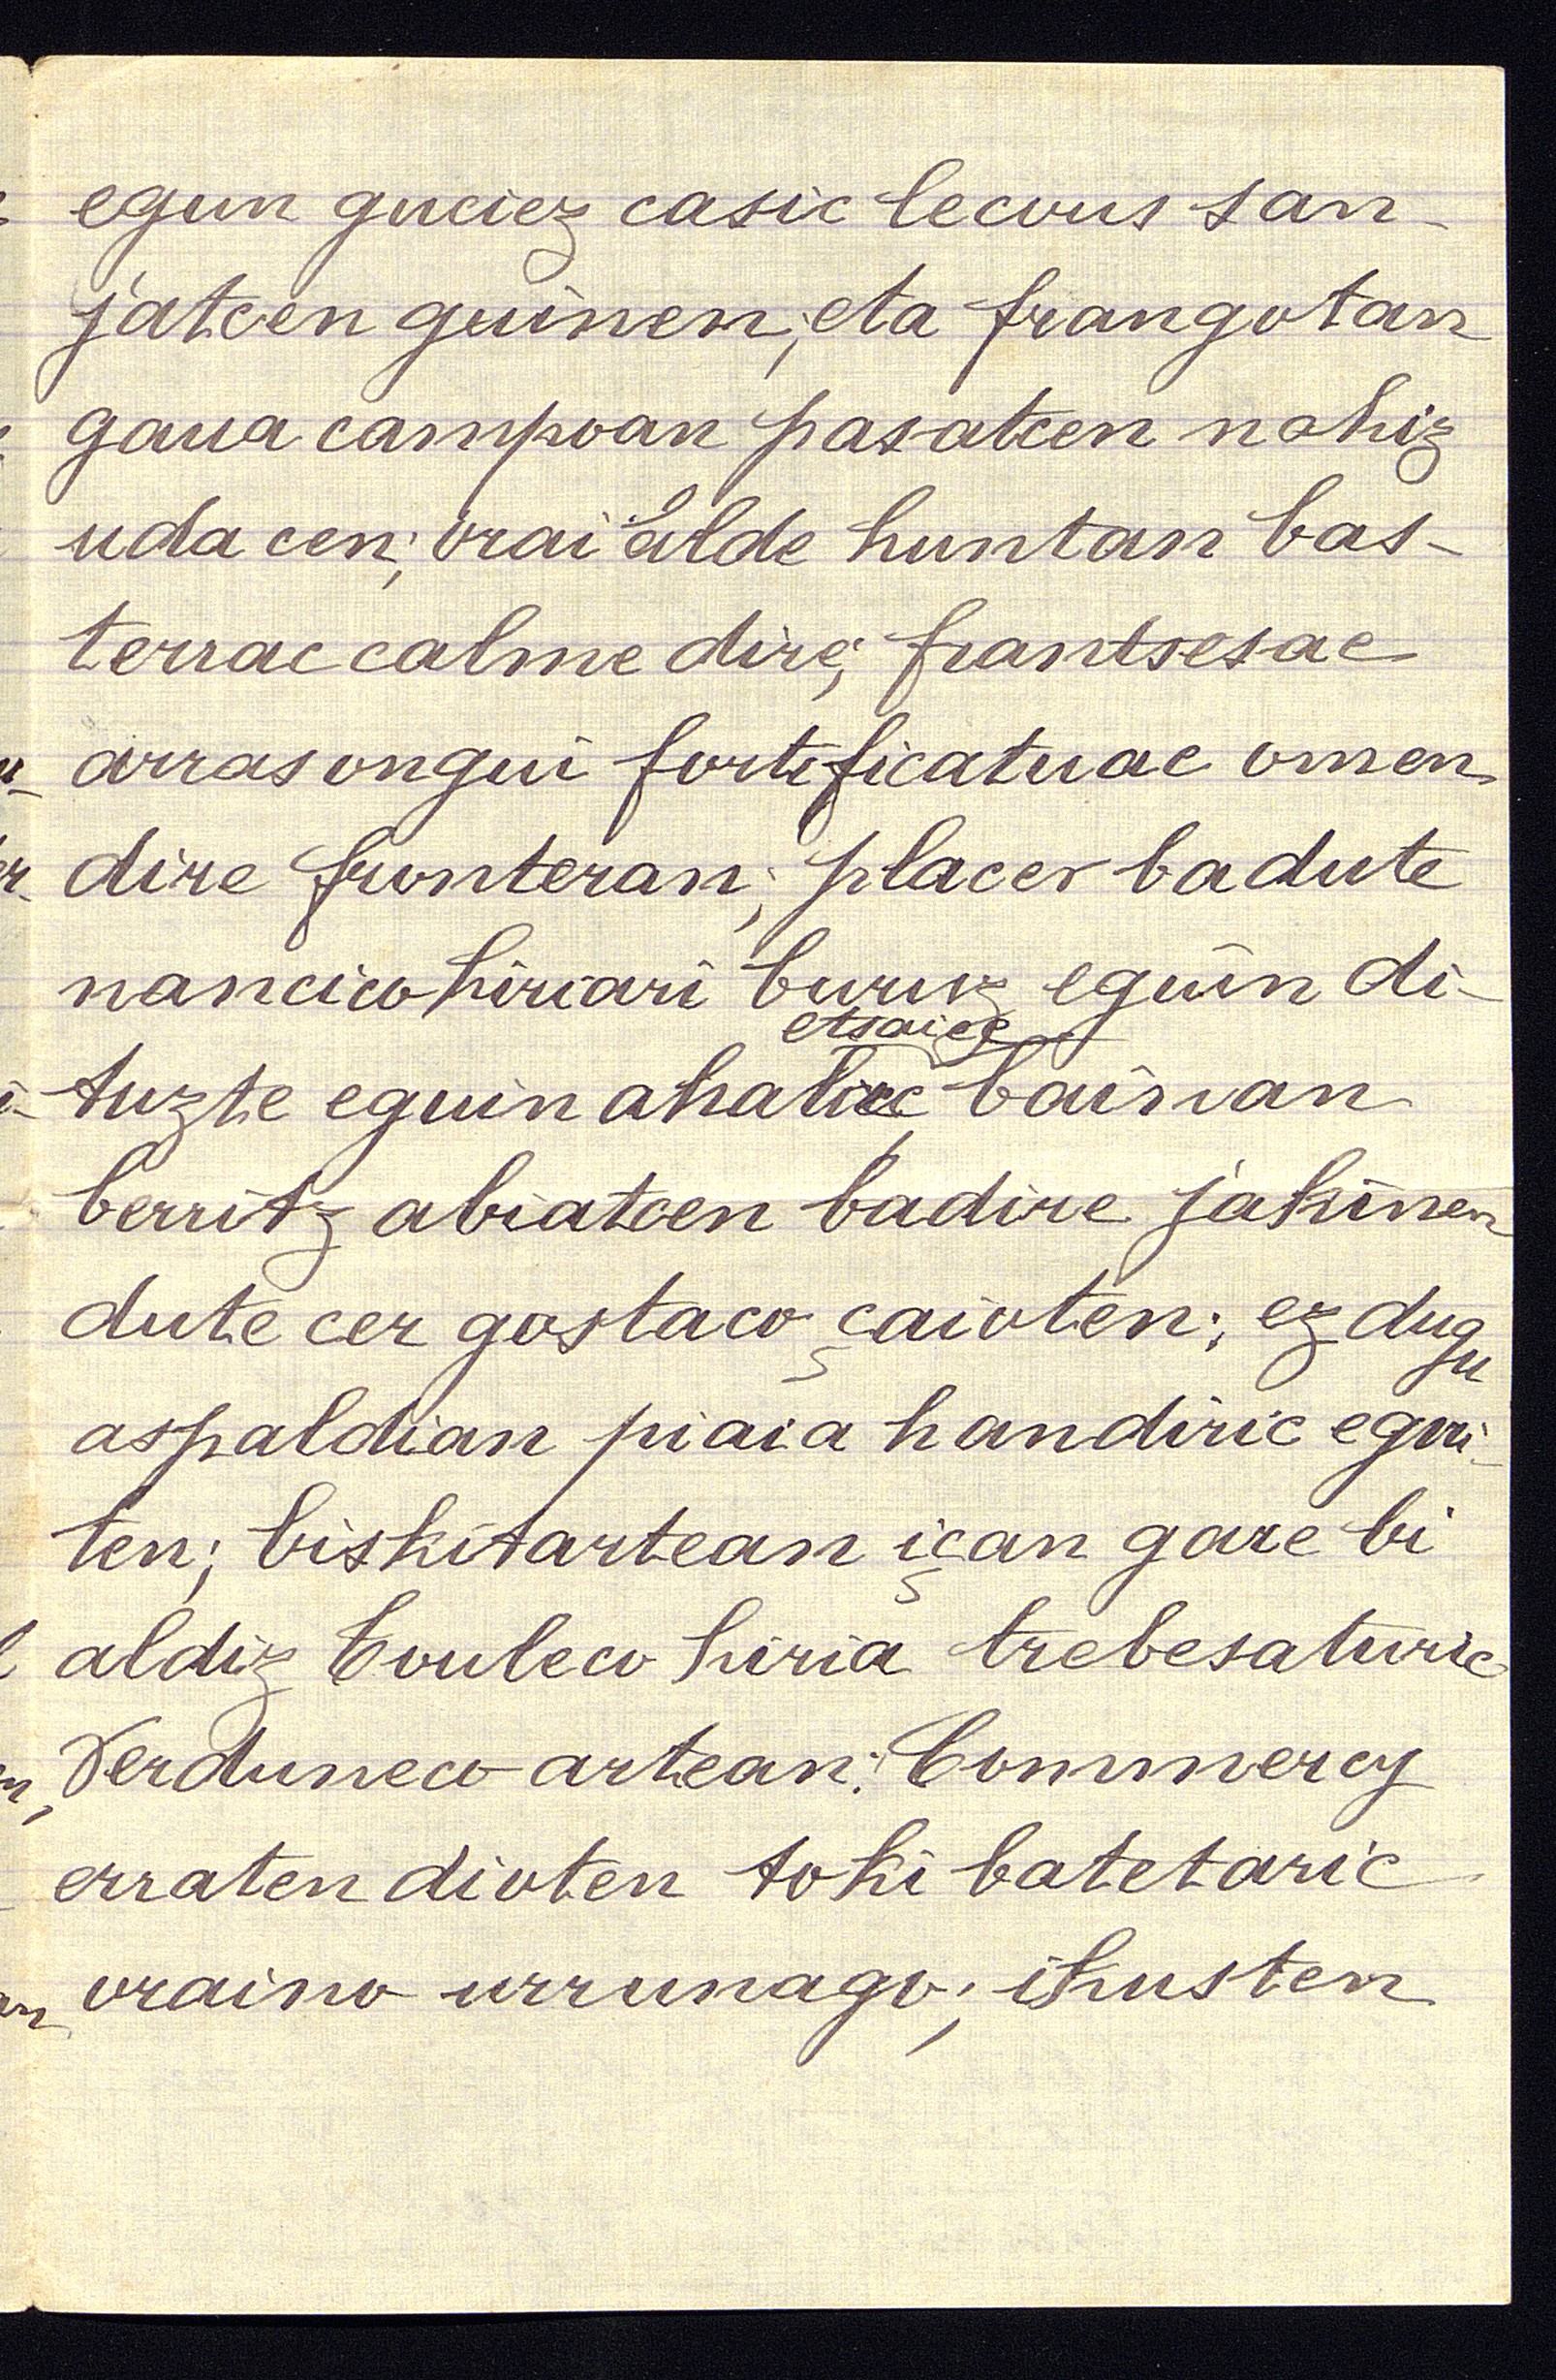 egun guciez casic lecous san-
jatcen guinen; eta frangotan
gaua campoan pasatcen nahiz
uda cen; orai alde huntan bas-
terrac calme dire; frantsesac
arras ongui fortificatuac omen
dire fronteran; placer badute
nancico hiriari buruz eguin di-
etsaiec
tuzte eguin ahalac, bainan
berritz abiatcen badire jakinen
dute cer gostaco çaioten; ez dugu
aspaldian piaia handiric egui-
ten; biskitartean içan gare bi
aldiz Touleco hiria trebesaturic
Verduneco artean: Commercy
erraten dioten toki batetaric
oraino urrunago; ikusten